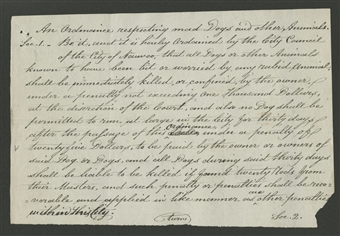 An Ordinance respecting mad Dogs and other Animals.
Sec. 1. Be it, and it is hereby Ordained by the City Council
of the City of Nauvoo, that all Dogs or other Animals
known to have been bit or worried by any rabid Animal
shall be immediately killed, or confined, by the owner,
under a penalty not exceeding One Thousand Dollars,
at the discretion of the Court, and also no Dog shall be
permitted to run at large in the City for thirty days
ordinance
after the passage of this under a penalty of
twenty five Dollars, to be paid by the owner or owners of
said Dog or Dogs, and all Dogs during said thirty days
shall be liable to be killed if found twenty Rods from
their Masters, and such penalty or penalties shall be reco-
verable and applied in like manner as other penalties
Sec. 2.